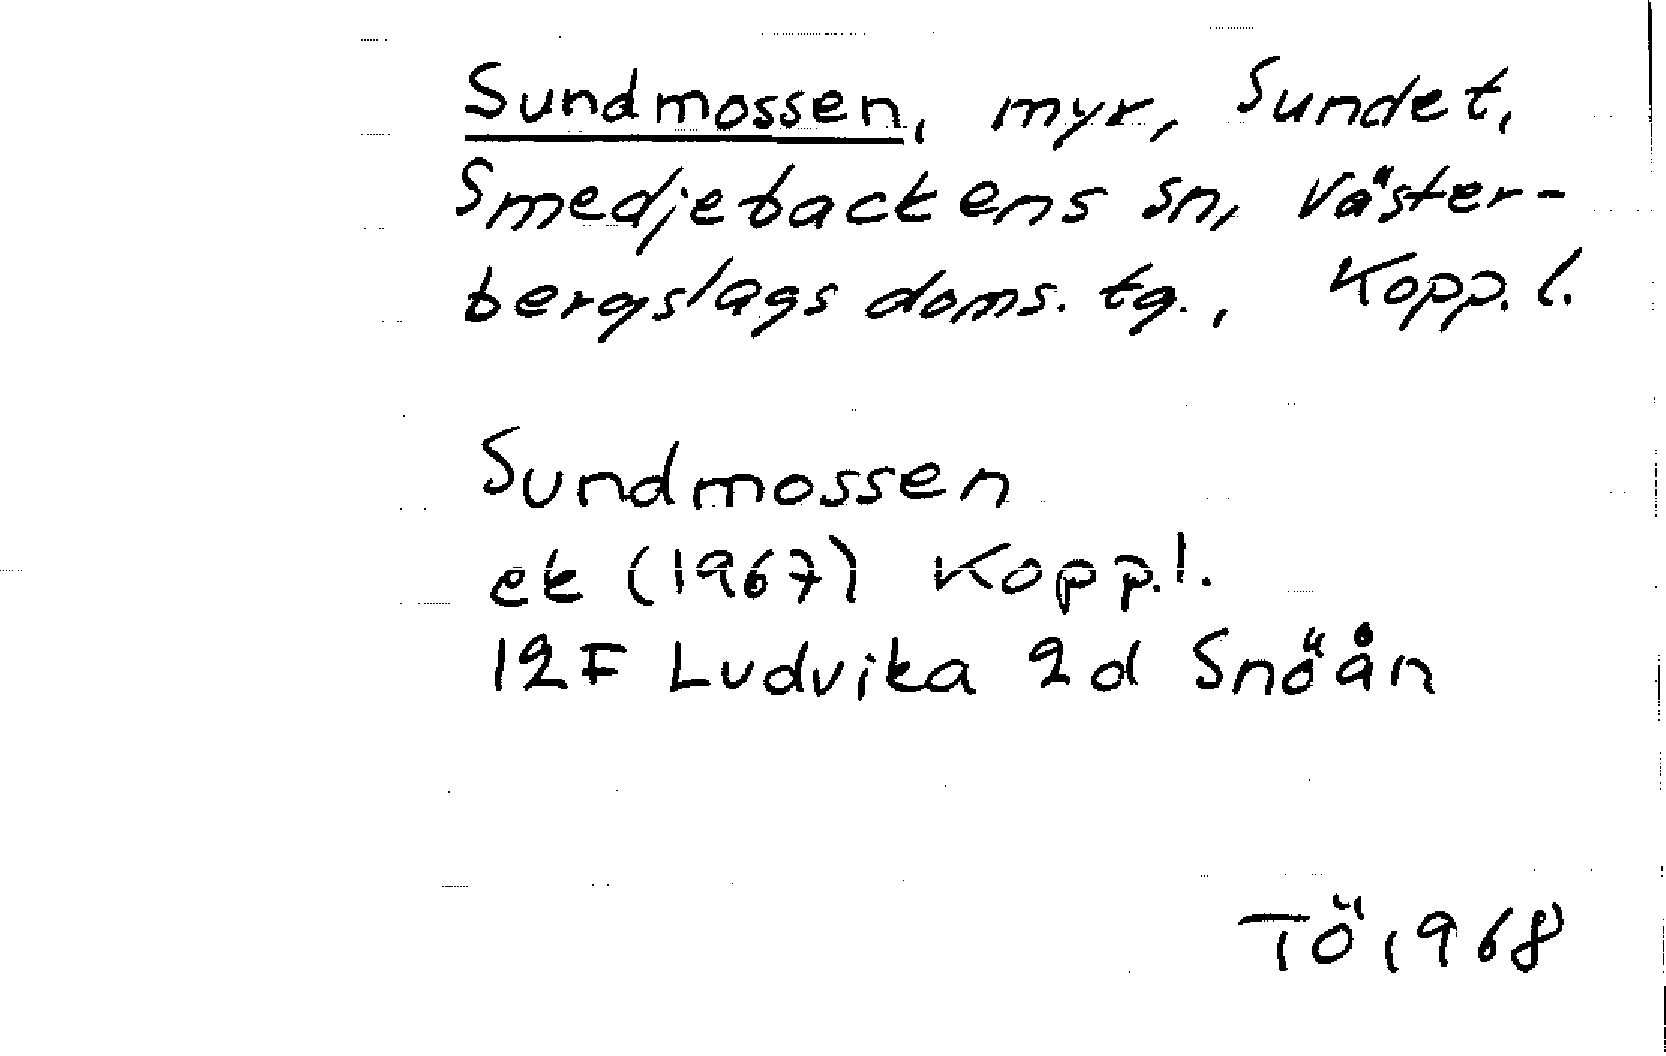 Sundmossen, myr, Sundet,
Smedjebackens sn, Väster-
bergslags doms. tg., Kopp. l.
Sundmossen
ek (1967) Kopp. l.
12F Ludvika 2d Snöån
TÖ 1968